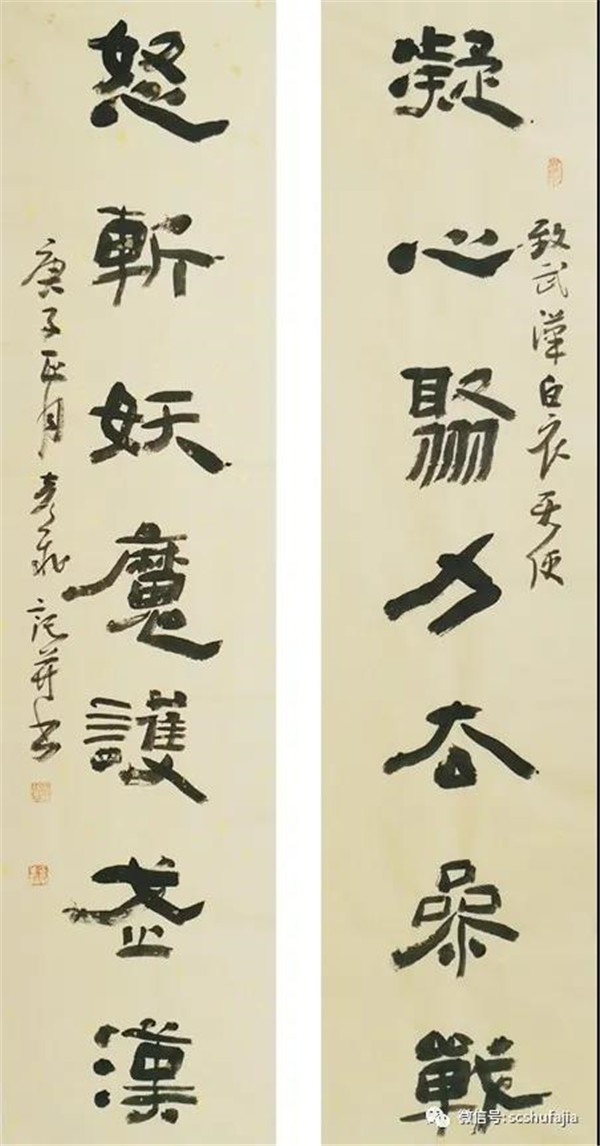 凝心聚力去參戰
致武漢白衣天使
怒斬妖魔護武漢
庚子正月 记并书
微信号: scshufajia